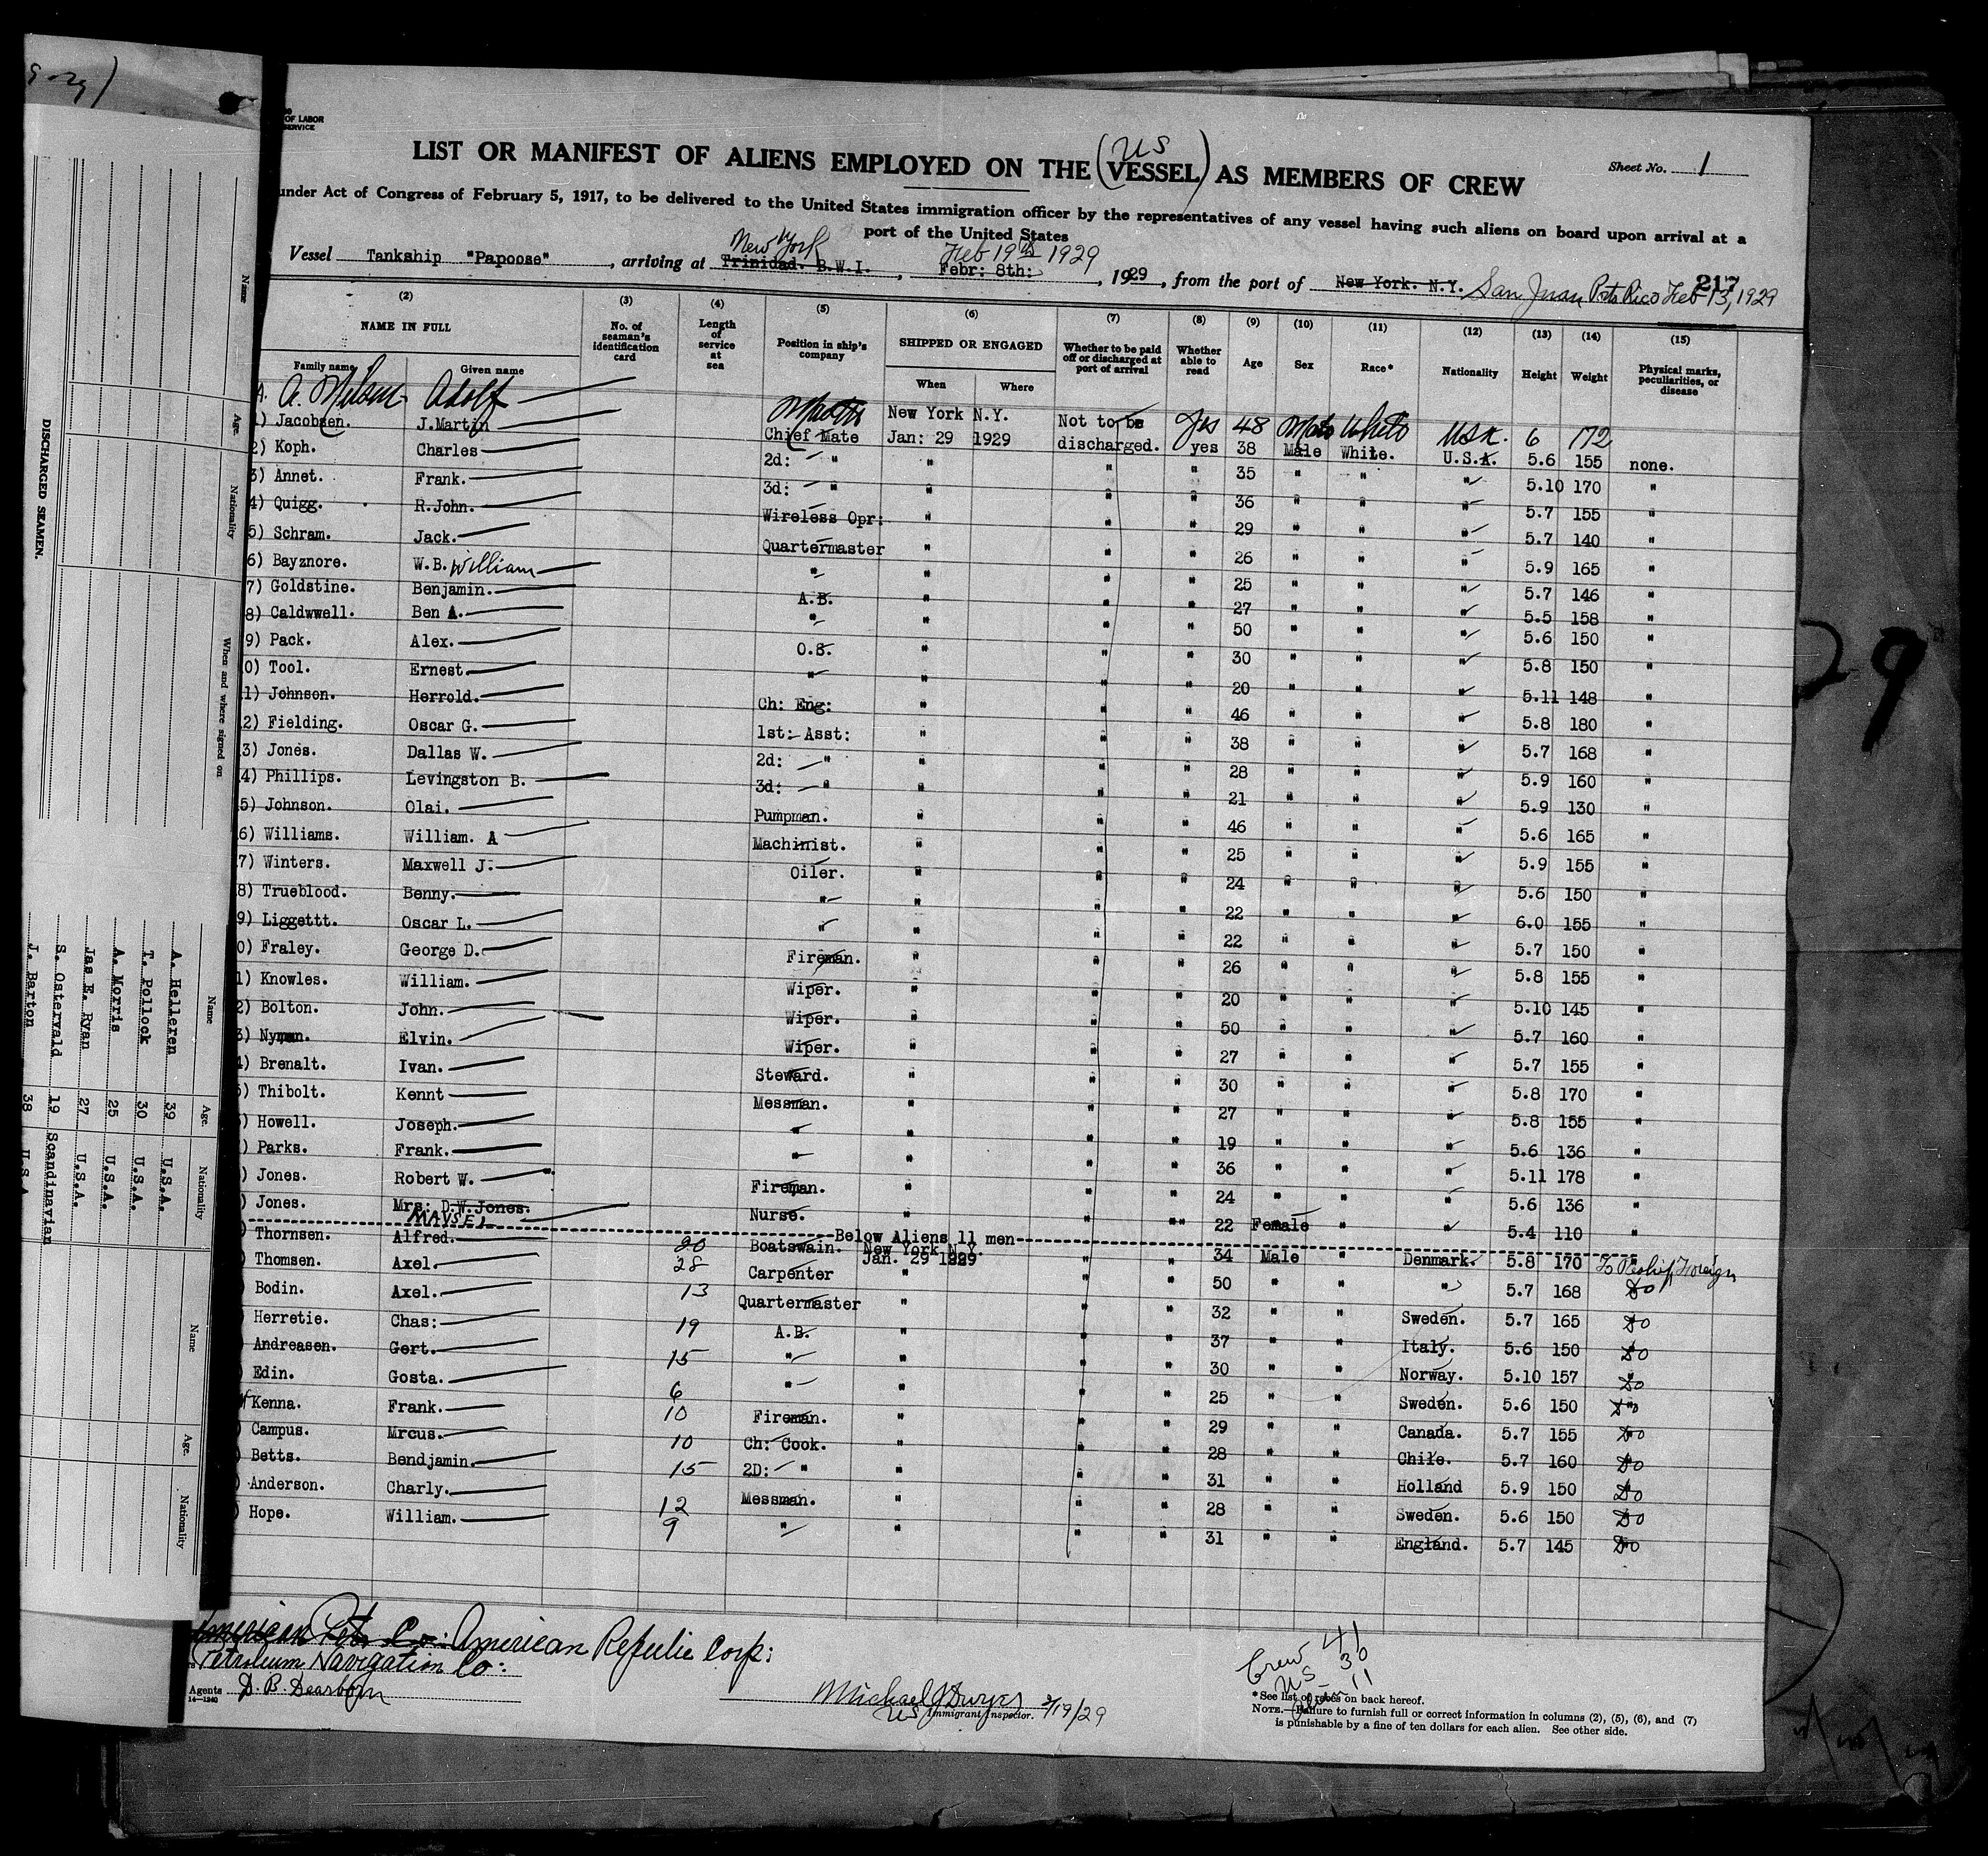 OF LABOR
SERVICE
LIST OR MANIFEST OF ALIENS EMPLOYED ON THE (US VESSEL) AS MEMBERS OF CREW
Sheet No. 1
under Act of Congress of February 5, 1917, to be delivered to the United States immigration officer by the representatives of any vessel having such aliens on board upon arrival at a
port of the United States
Vessel Tankship "Papoose", arriving at Trinidad. B.W.I. New York, Febr: 8th: Feb 19th 1929, 1929, from the port of New York. N.Y. San Juan Porto Rico Feb 13, 1929
217
(2) (3) (4) (5) (6) (7) (8) (9) (10) (11) (12) (13) (14) (15)
NAME IN FULL No. of seaman's identification card Length of service at sea Position in ship's company SHIPPED OR ENGAGED Whether to be paid off or discharged at port of arrival Whether able to read Age Sex Race* Nationality Height Weight Physical marks, peculiarities, or disease
Family name Given name When Where
Adolf Master New York N.Y. Not to be yes 48 Male White USA. 6 172
1) Jacobsen. J.Martin Chief Mate Jan: 29 1929 discharged. yes 38 Male White. U.S.A. 5.6 155 none.
2) Koph. Charles 2d: " " " " 35 " " " 5.10 170 "
3) Annet. Frank. 3d: " " " " 36 " " " 5.7 155 "
4) Quigg. R.John. Wireless Opr: " " " 29 " " " 5.7 140 "
5) Schram. Jack. Quartermaster " " " 26 " " " 5.9 165 "
6) Bayznore. W.B. William " " " " 25 " " " 5.7 146 "
7) Goldstine. Benjamin. A.B. " " " 27 " " " 5.5 158 "
8) Caldwwell. Ben A. " " " " 50 " " " 5.6 150 "
9) Pack. Alex. O.S. " " " 30 " " " 5.8 150 "
0) Tool. Ernest. " " " " 20 " " " 5.11 148 "
1) Johnson. Herrold. Ch: Eng: " " " 46 " " " 5.8 180 "
2) Fielding. Oscar G. 1st: Asst: " " " 38 " " " 5.7 168 "
3) Jones. Dallas W. 2d: " " " " 28 " " " 5.9 160 "
4) Phillips. Levingston B. 3d: " " " " 21 " " " 5.9 130 "
5) Johnson. Olai. Pumpman. " " " 46 " " " 5.6 165 "
6) Williams. William. A Machinist. " " " 25 " " " 5.9 155 "
7) Winters. Maxwell J. Oiler. " " " 24 " " " 5.6 150 "
8) Trueblood. Benny. " " " " 22 " " " 6.0 155 "
9) Liggettt. Oscar L. " " " " 22 " " " 5.7 150 "
0) Fraley. George D. Fireman. " " " 26 " " " 5.8 155 "
1) Knowles. William. Wiper. " " " 20 " " " 5.10 145 "
2) Bolton. John. Wiper. " " " 50 " " " 5.7 160 "
3) Nyman. Elvin. Wiper. " " " 27 " " " 5.7 155 "
4) Brenalt. Ivan. Steward. " " " 30 " " " 5.8 170 "
5) Thibolt. Kennt Messman. " " " 27 " " " 5.8 155 "
) Howell. Joseph. " " " " 19 " " " 5.6 136 "
) Parks. Frank. " " " " 36 " " " 5.11 178 "
) Jones. Robert W. Fireman. " " " 24 " " " 5.6 136 "
) Jones. Mrs: D.W.Jones. Nurse. " " "" 22 Female " " 5.4 110 "
Below Aliens 11 men
) Thornsen. Alfred. 20 Boatswain. New York N.Y. Jan. 29 1929 " " 34 Male " Denmark. 5.8 170 Foreign
) Thomsen. Axel. 28 Carpenter " " " 50 " " " 5.7 168 Do
) Bodin. Axel. 13 Quartermaster " " " 32 " " Sweden. 5.7 165 Do
) Herretie. Chas: 19 A.B. " " " 37 " " Italy. 5.6 150 Do
) Andreasen. Gert. 15 " " " " 30 " " Norway. 5.10 157 Do
) Edin. Gosta. 6 " " " " 25 " " Sweden. 5.6 150 Do
Kenna. Frank. 10 Fireman. " " " 29 " " Canada. 5.7 155 Do
) Campus. Mrcus. 10 Ch: Cook. " " " 28 " " Chile. 5.7 160 Do
) Betts. Bendjamin. 15 2D: " " " " 31 " " Holland 5.9 150 Do
) Anderson. Charly. 12 Messman. " " " 28 " " Sweden. 5.6 150 Do
) Hope. William. 9 " " " " 31 " " England. 5.7 145 Do
American Petr Co: American Republic Corp:
Petroleum Navigation Co:
Agents D. B. Dearborn
14-1240
Michael J Dwyer 2/19/29
US Immigrant Inspector.
Crew 41
US 30
Alien 11
*See list of races on back hereof.
NOTE.—Failure to furnish full or correct information in columns (2), (5), (6), and (7)
is punishable by a fine of ten dollars for each alien. See other side.
29
DISCHARGED SEAMEN.
Name Age. Nationality When and where signed on
Name Age. Nationality
A. Helleren 39 U.S.A.
T. Pollock 30 U.S.A.
A. Morris 25 U.S.A.
Jas E. Ryan 27 U.S.A.
S. Ostervald 19 Scandinavian
J. Barton 38 U.S.A.
Name Age. Nationality